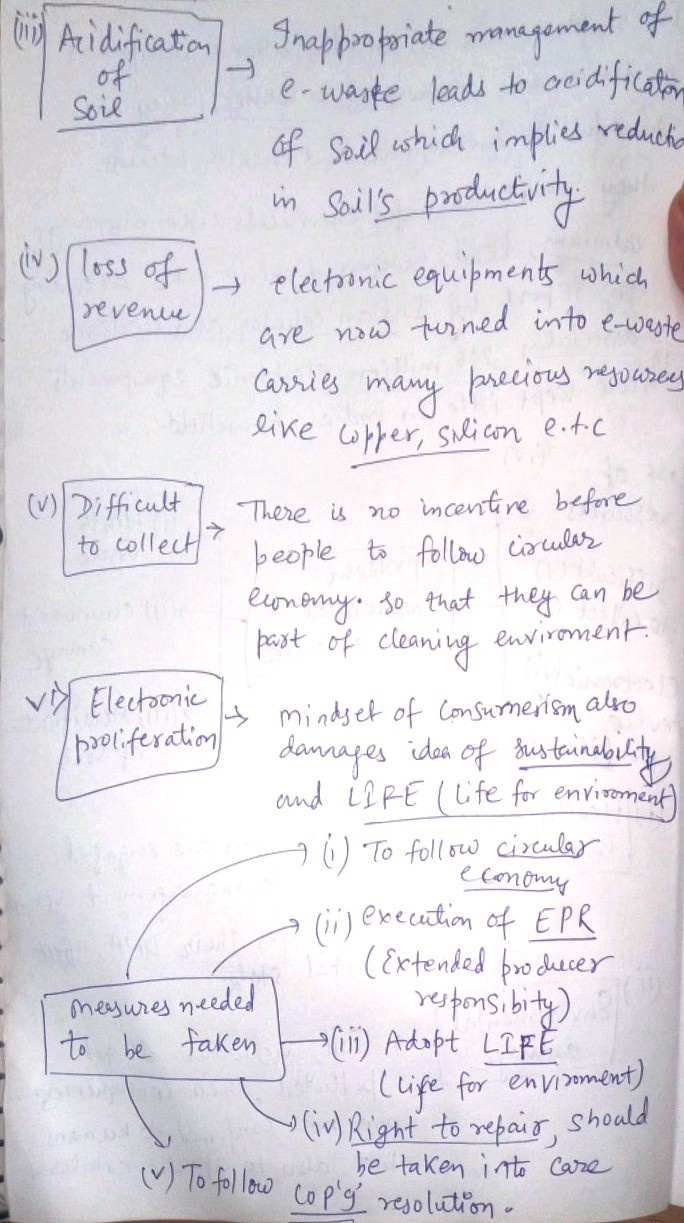 (iii) Acidification of Soil → Inappropriate management of
e-waste leads to acidification
of Soil which implies reductio
in Soil's productivity.
(iv) loss of revenue → electronic equipments which
are now turned into e-waste
Carries many precious resources
like copper, silicon e.t.c
(v) Difficult to collect → There is no incentive before
people to follow circular
economy. so that they can be
part of cleaning enviroment.
vi) Electronic proliferation → mindset of Consumerism also
damages idea of sustainability
and LIFE (Life for enviroment)
measures needed to be taken
→ (i) To follow circular
economy
→ (ii) execution of EPR
(Extended producer
responsibity)
→ (iii) Adopt LIFE
(Life for enviroment)
→ (iv) Right to repair, should
be taken into care
(v) To follow cop'9' resolution.